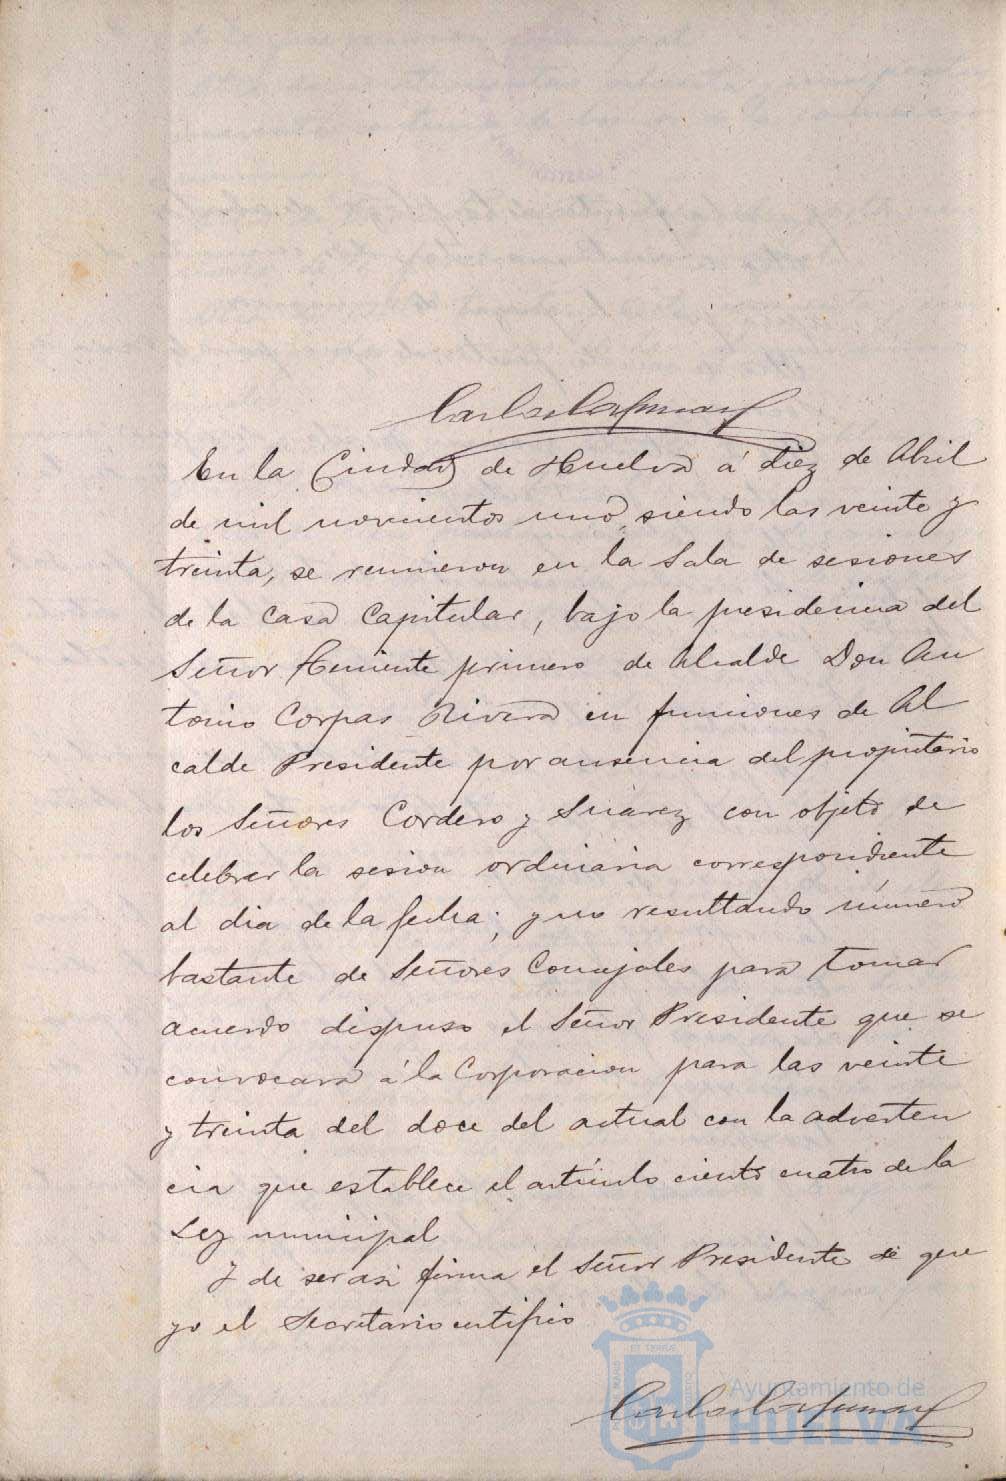 En la Ciudad de Huelva á diez de Abril
de mil novecientos uno, siendo las veinte y
treinta, se reunieron en la Sala de sesiones
de la Casa Capitular, bajo la presidencia del
Señor Teniente primero de Alcalde Don An
tonio Corpas Rivera en funciones de Al
calde Presidente por ausencia del propietario
los Señores Cordero y Suárez con objeto de
celebrar la sesion ordinaria correspondiente
al dia de la fecha; y no resultando número
bastante de Señores Concejales para tomar
acuerdo dispuso el Señor Presidente que se
convocara á la Corporacion para las veinte
y treinta del doce del actual con la adverten
cia que establece el artículo ciento cuatro de la
Ley municipal
Y de ser asi firma el Señor Presidente de que
yo el Secretario certifico
Ayuntamiento de
HUELVA